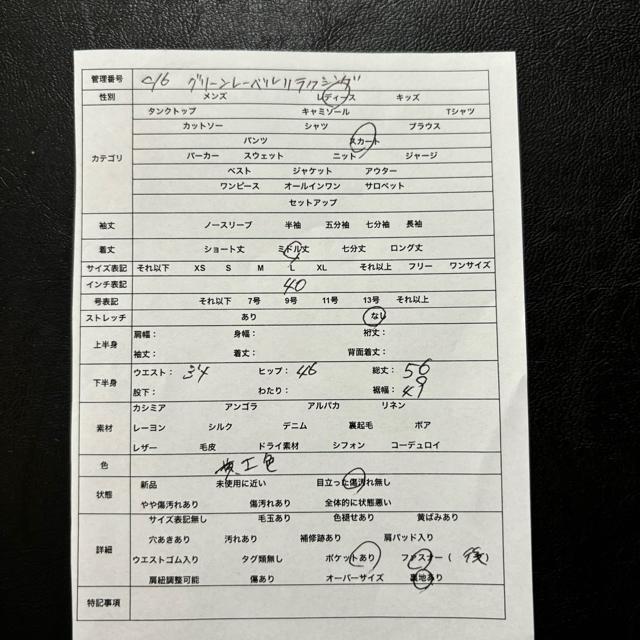 管理番号 c/6 グリーンレーベルリラクシング
性別 メンズ レディース キッズ
タンクトップ キャミソール Tシャツ
カットソー シャツ ブラウス
パンツ スカート
カテゴリ パーカー スウェット ニット ジャージ
ベスト ジャケット アウター
ワンピース オールインワン サロペット
セットアップ
袖丈 ノースリーブ 半袖 五分袖 七分袖 長袖
着丈 ショート丈 ミドル丈 七分丈 ロング丈
サイズ表記 それ以下 XS S M L XL それ以上 フリー ワンサイズ
インチ表記 40
号表記 それ以下 7号 9号 11号 13号 それ以上
ストレッチ あり なし
上半身 肩幅： 身幅： 裄丈：
袖丈： 着丈： 背面着丈：
下半身 ウエスト： 34 ヒップ： 46 総丈： 56
股下： わたり： 裾幅： 49
カシミア アンゴラ アルパカ リネン
素材 レーヨン シルク デニム 裏起毛 ボア
レザー 毛皮 ドライ素材 シフォン コーデュロイ
色 工色
状態 新品 未使用に近い 目立った傷汚れ無し
やや傷汚れあり 傷汚れあり 全体的に状態悪い
サイズ表記無し 毛玉あり 色褪せあり 黄ばみあり
詳細 穴あきあり 汚れあり 補修跡あり 肩パッド入り
ウエストゴム入り タグ類無し ポケットあり ファスナー ( 後 )
肩紐調整可能 傷あり オーバーサイズ 裏地あり
特記事項